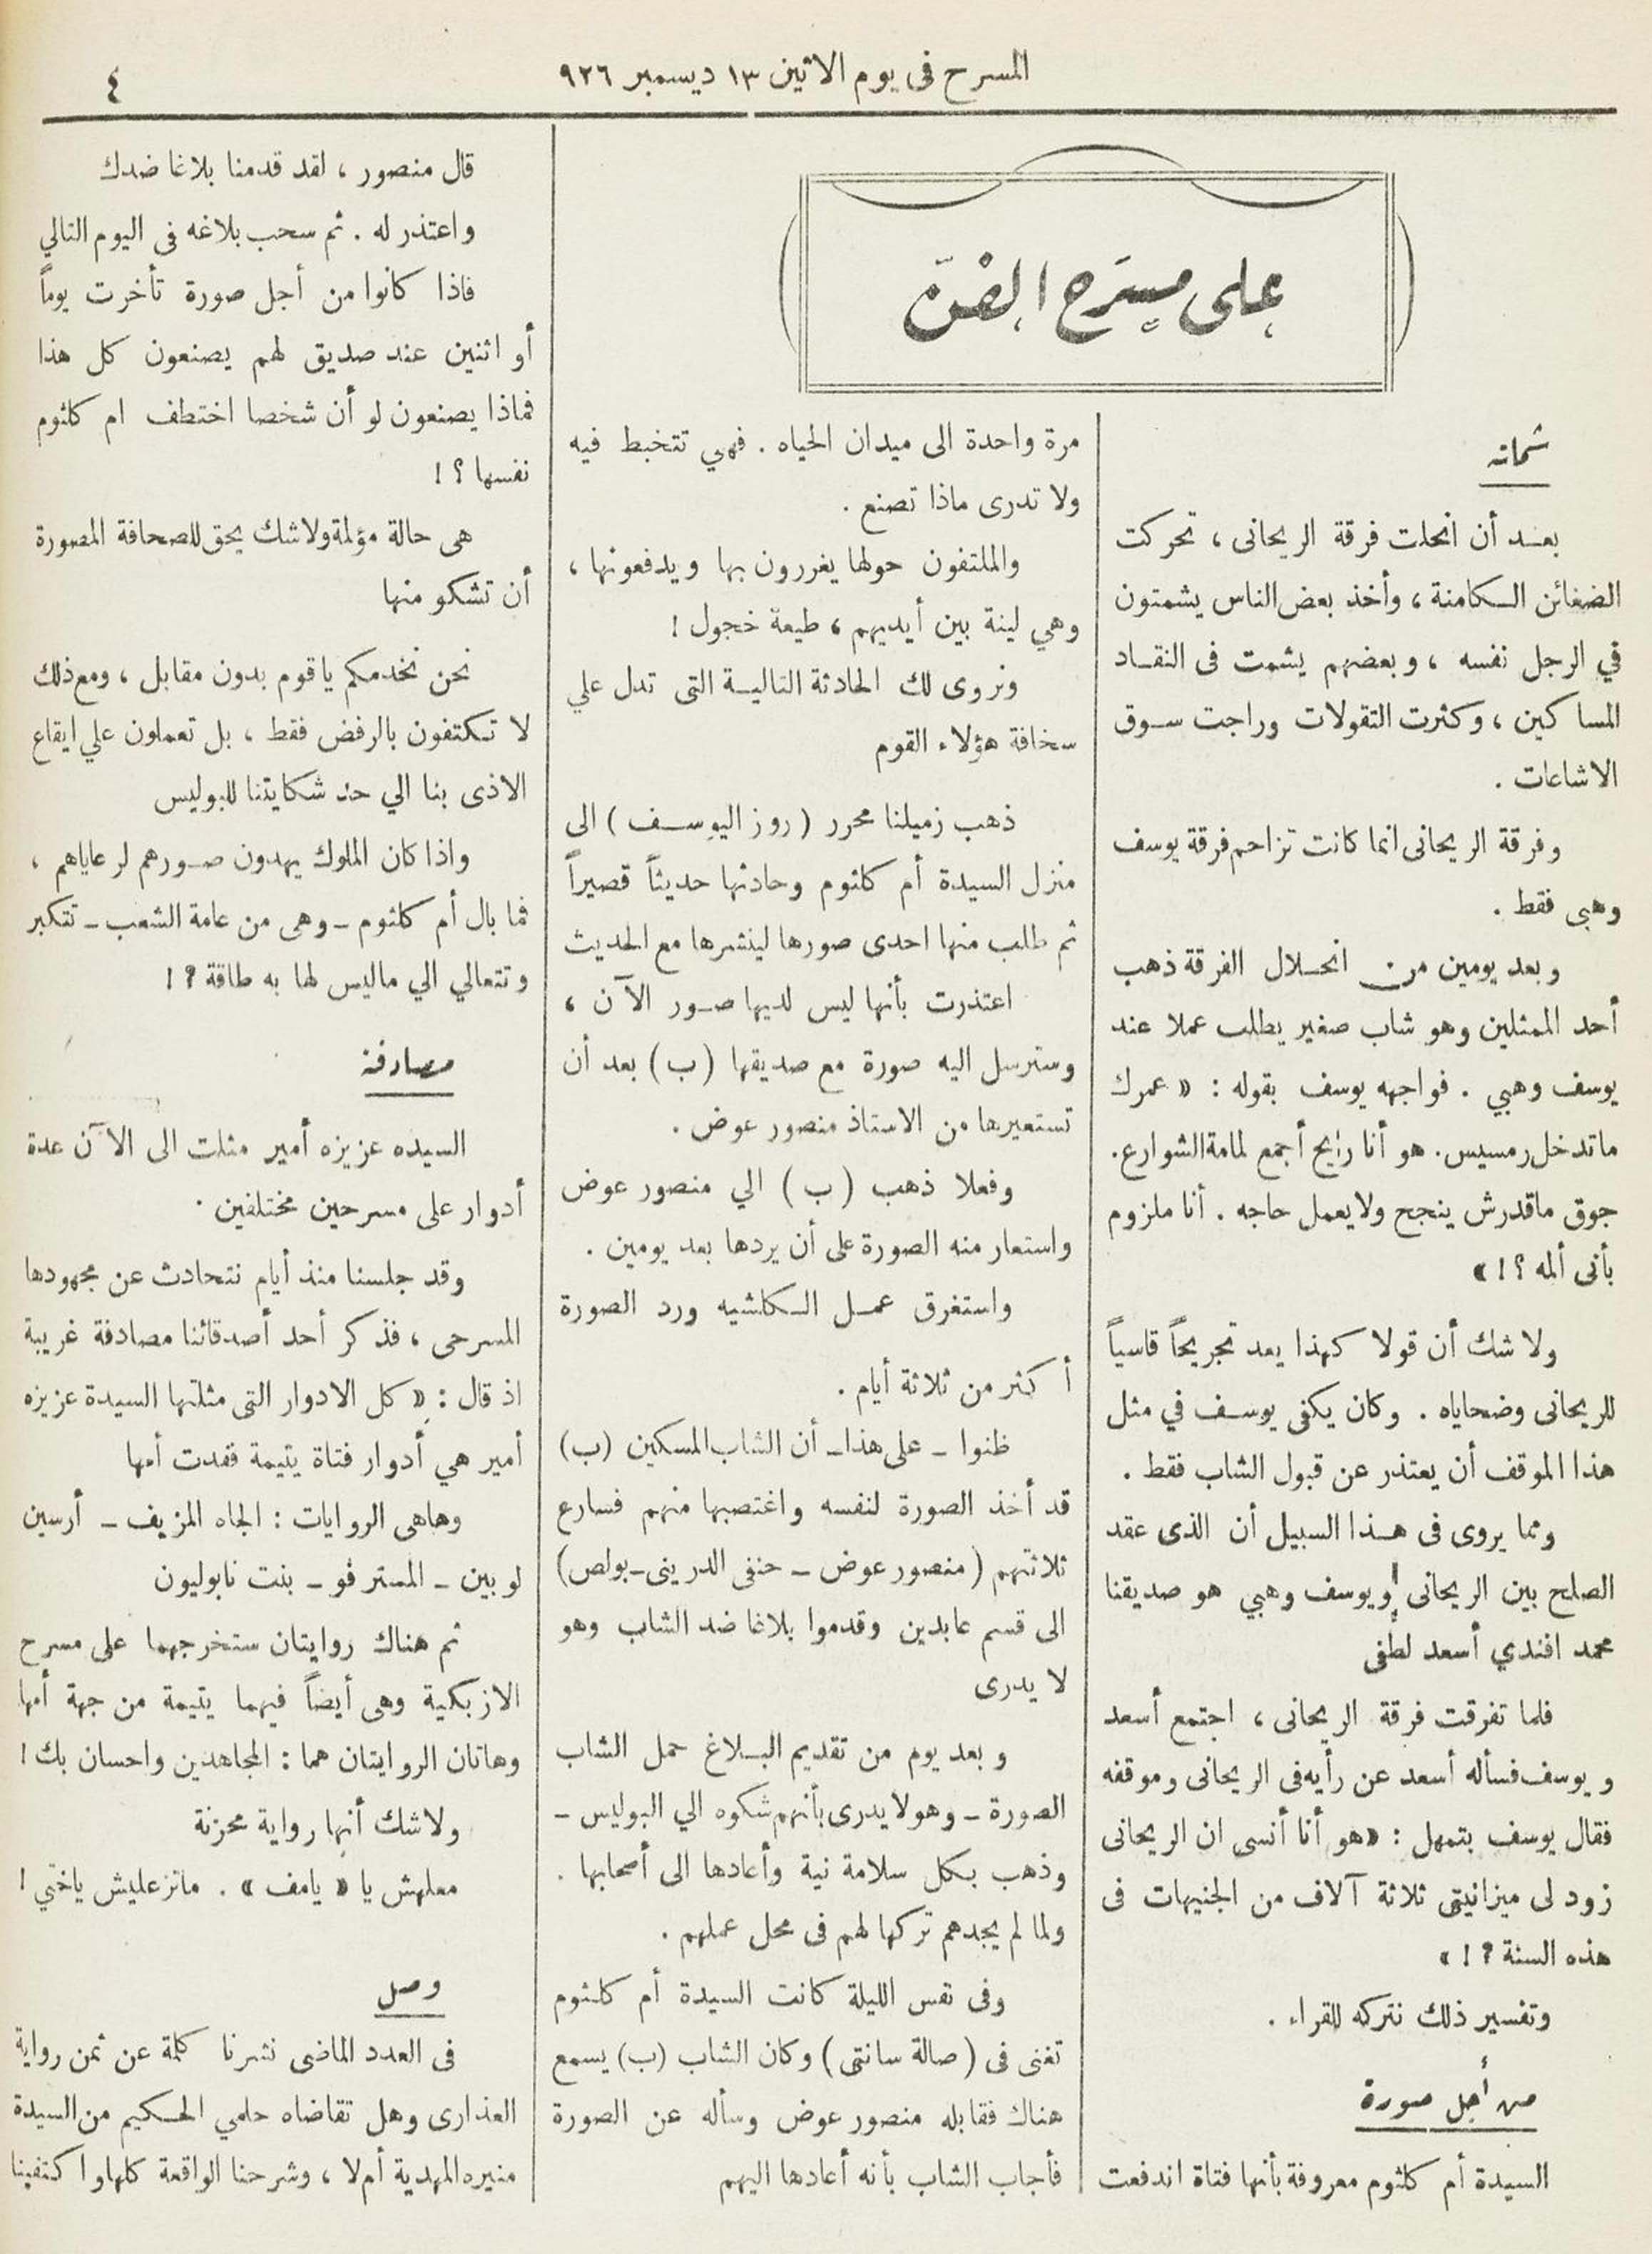 المسرح فى يوم الاثنين ١٣ ديسمبر ٩٢٦
٤
على مسرح الفن
شماته
بعد أن انحلت فرقة الريحانى ، تحركت
الضغائن الكامنة ، وأخذ بعض الناس يشمتون
في الرجل نفسه ، وبعضهم يشمت فى النقاد
المساكين ، وكثرت التقولات وراجت سوق
الاشاعات .
وفرقة الريحانى انما كانت تزاحم فرقة يوسف
وهبى فقط .
وبعد يومين من انحلال الفرقة ذهب
أحد الممثلين وهو شاب صغير يطلب عملا عند
يوسف وهبي . فواجهه يوسف بقوله : « عمرك
ماتدخل رمسيس. هو أنا رايح أجمع لمامة الشوارع.
جوق ماقدرش ينجح ولا يعمل حاجه . أنا ملزوم
بأنى ألمه ؟! »
ولا شك أن قولا كهذا يعد تجريحاً قاسياً
للريحانى وضحاياه . وكان يكفى يوسف في مثل
هذا الموقف أن يعتذر عن قبول الشاب فقط .
ومما يروى فى هذا السبيل أن الذى عقد
الصلح بين الريحانى ويوسف وهبي هو صديقنا
محمد افندي أسعد لطفى
فلما تفرقت فرقة الريحانى ، اجتمع أسعد
ويوسف فسأله أسعد عن رأيه فى الريحانى وموقفه
فقال يوسف بتمهل : «هو أنا أنسى ان الريحانى
زود لى ميزانيتى ثلاثة آلاف من الجنيهات فى
هذه السنة ؟! »
وتفسير ذلك نتركه للقراء .
من أجل صورة
السيدة أم كلثوم معروفة بأنها فتاة اندفعت
مرة واحدة الى ميدان الحياه . فهي تتخبط فيه
ولا تدرى ماذا تصنع .
والملتفون حولها يغررون بها ويدفعونها ،
وهي لينة بين أيديهم ، طيعة خجول !
ونروى لك الحادثة التالية التى تدل علي
سخافة هؤلاء القوم
ذهب زميلنا محرر ( روز اليوسف ) الى
منزل السيدة أم كلثوم وحادثها حديثاً قصيراً
ثم طلب منها احدى صورها لينشرها مع الحديث
اعتذرت بأنها ليس لديها صور الآن ،
وسترسل اليه صورة مع صديقها (ب) بعد أن
تستعيرها من الاستاذ منصور عوض .
وفعلا ذهب (ب) الي منصور عوض
واستعار منه الصورة على أن يردها بعد يومين .
واستغرق عمل الكاشيه ورد الصورة
أكثر من ثلاثة أيام .
ظنوا - على هذا - أن الشاب المسكين (ب)
قد أخذ الصورة لنفسه واغتصبها منهم فسارع
ثلاثتهم ( منصور عوض - حنفى الدرينى - بولص)
الى قسم عابدين وقدموا بلاغا ضد الشاب وهو
لا يدرى
وبعد يوم من تقديم البلاغ حمل الشاب
الصورة - وهو لا يدرى بأنهم شكوه الي البوليس -
وذهب بكل سلامة نية وأعادها الى أصحابها .
ولما لم يجدهم تركها لهم فى محل عملهم .
وفى نفس الليلة كانت السيدة أم كلثوم
تغنى فى ( صالة سانتى ) وكان الشاب (ب) يسمع
هناك فقابله منصور عوض وسأله عن الصورة
فأجاب الشاب بأنه أعادها اليهم
قال منصور ، لقد قدمنا بلاغا ضدك
واعتذر له . ثم سحب بلاغه فى اليوم التالي
فاذا كانوا من أجل صورة تأخرت يوماً
أو اثنين عند صديق لهم يصنعون كل هذا
فماذا يصنعون لو أن شخصا اختطف ام كلثوم
نفسها ؟!
هى حالة مؤلمة ولا شك يحق للصحافة المصورة
أن تشكو منها
نحن نخدمكم ياقوم بدون مقابل ، ومع ذلك
لا تكتفون بالرفض فقط ، بل تعملون علي ايقاع
الاذى بنا الي حد شكايتنا للبوليس
واذا كان الملوك يهدون صورهم لرعاياهم ،
فما بال أم كلثوم - وهى من عامة الشعب - تتكبر
وتتعالي الي ماليس لها به طاقة ؟!
مصادفة
السيده عزيزه أمير مثلت الى الآن عدة
أدوار على مسرحين مختلفين .
وقد جلسنا منذ أيام نتحادث عن مجهودها
المسرحى ، فذكر أحد أصدقائنا مصادفة غريبة
اذ قال : « كل الادوار التى مثلتها السيدة عزيزه
أمير هي أدوار فتاة يتيمة فقدت أمها
وهاهى الروايات : الجاه المزيف - أرسين
لوبين - المستر فو - بنت نابوليون
ثم هناك روايتان ستخرجهما على مسرح
الازبكية وهى أيضاً فيهما يتيمة من جهة أمها
وهاتان الروايتان هما : المجاهدين واحسان بك !
ولا شك أنها رواية محزنة
معلهش يا « يامف » . ماتزعليش ياختي !
وصل
فى العدد الماضى نشرنا كلمة عن ثمن رواية
العذارى وهل تقاضاه حلمي الحكيم من السيدة
منيره المهدية أم لا ، وشرحنا الواقعة كلها واكتفينا